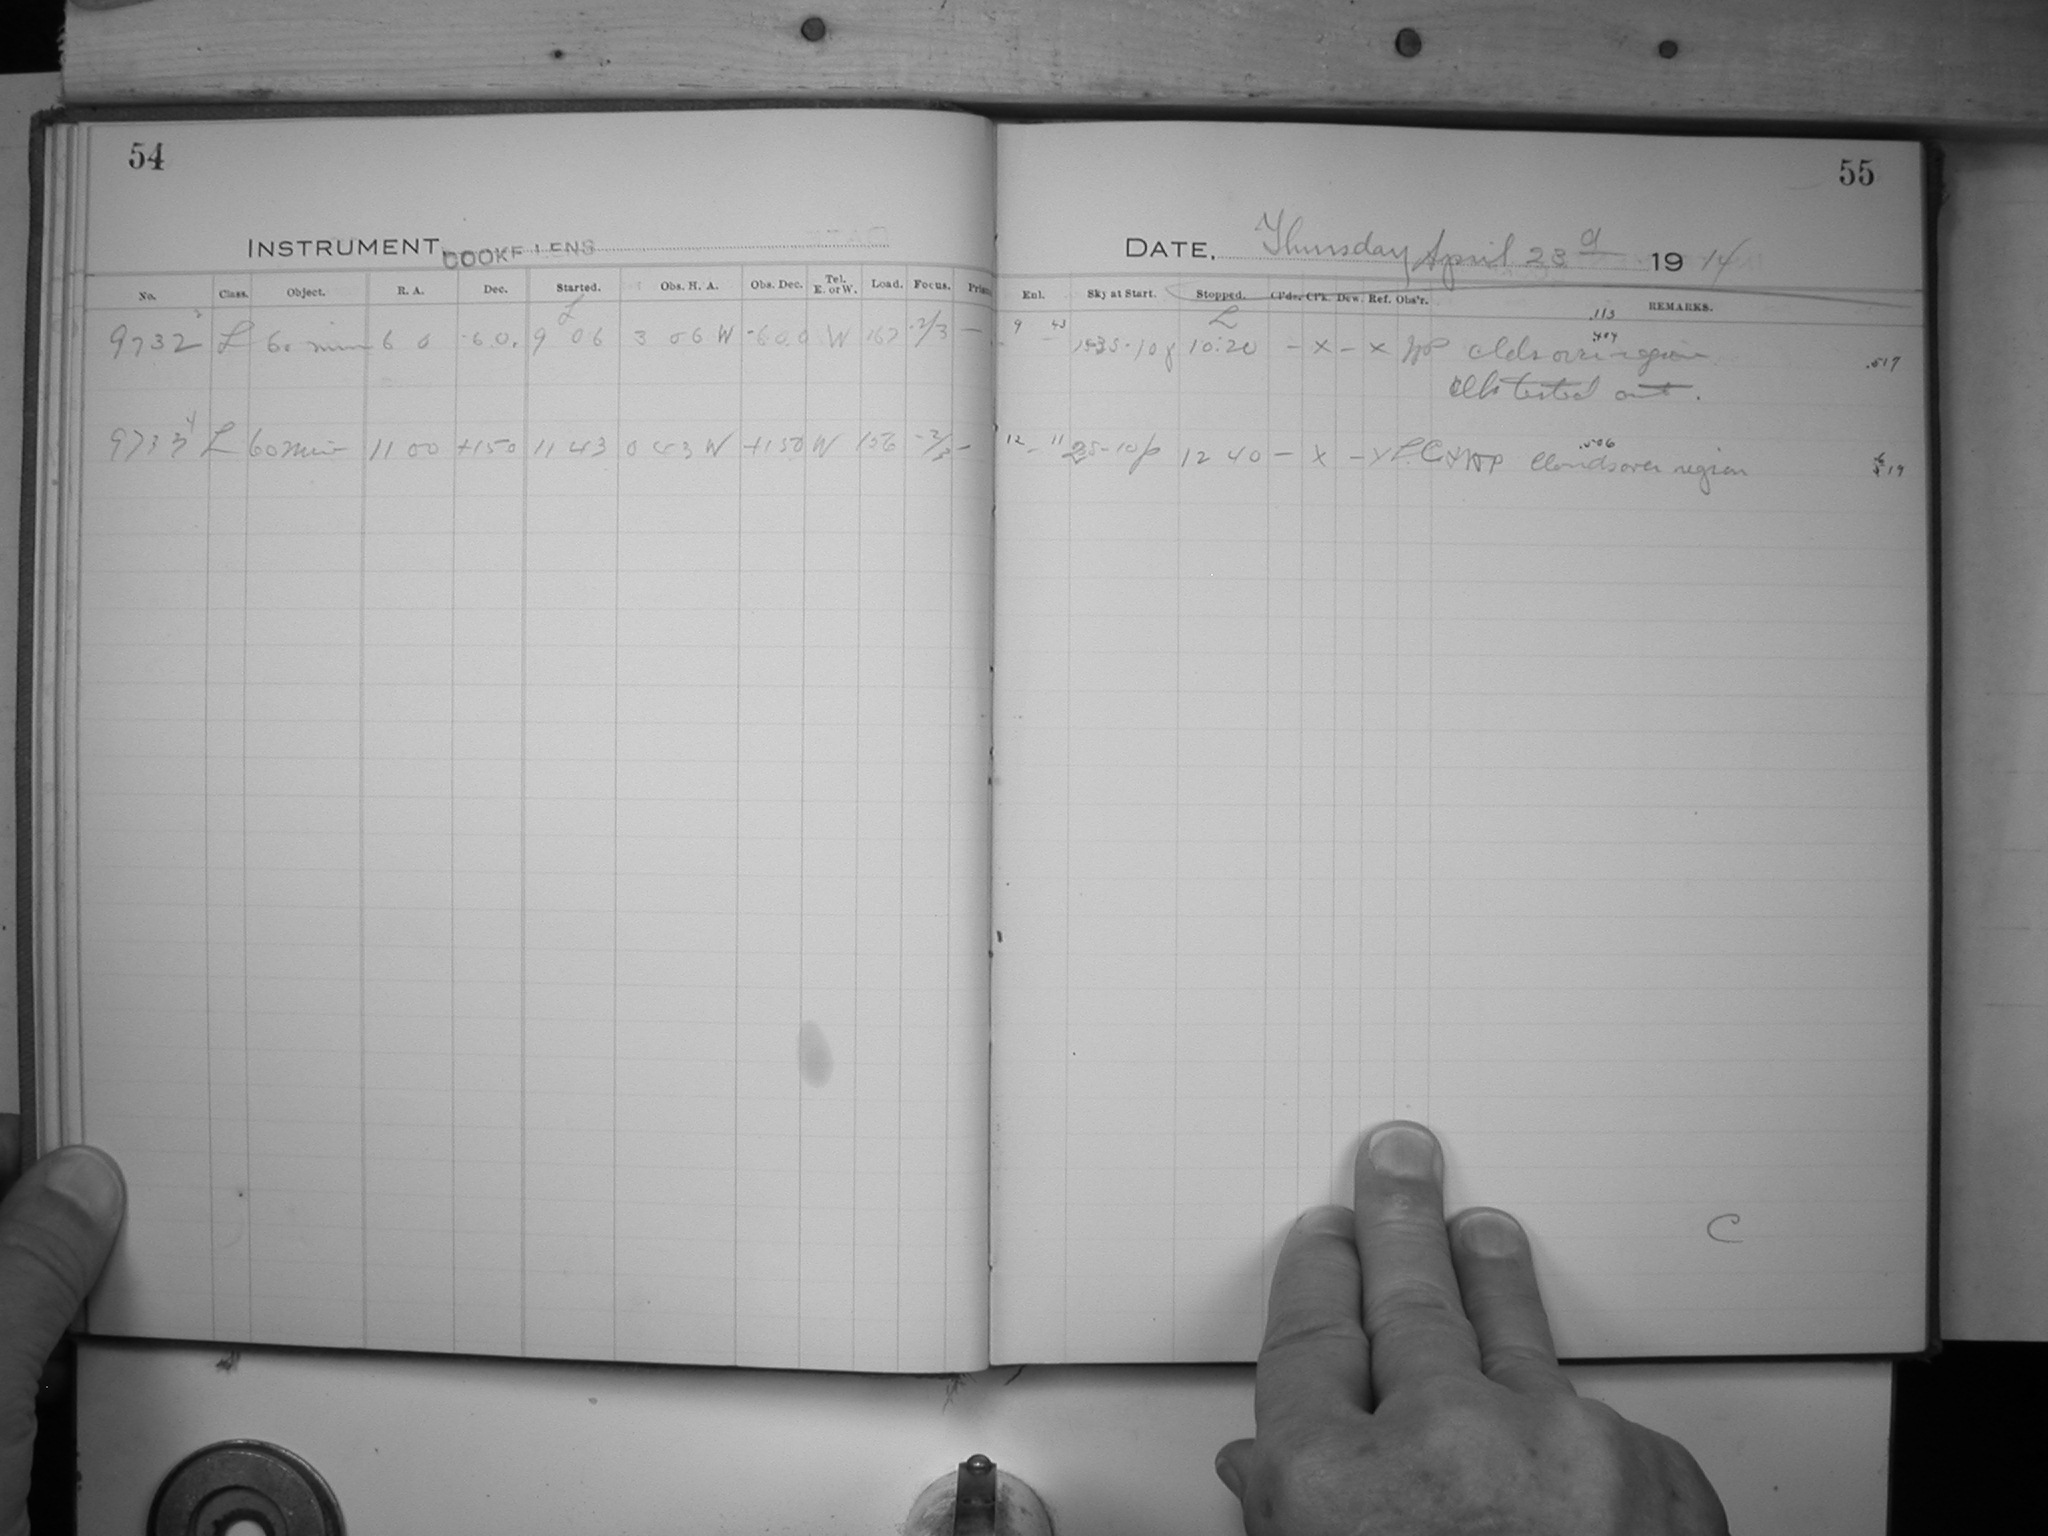 54
INSTRUMENT. COOKE LENS
No. Class. Object. R. A. Dec. Started. Obs. H. A. Obs. Dec. Tel. E. or W. Load. Focus. Prism
L
9732 L 60 min 6 0 -60. 9 06 3 06 W -60 0 W 167 -2/3 —
9733 4 L 60 min 11 00 +15 0 11 43 0 43 W +15 0 W 156 -2/3 —
55
DATE. Thursday April 23 d 19 14
Enl. Sky at Start. Stopped. Cl'ds. Cl'k. Dew. Ref. Obs'r. REMARKS.
.113
9 43 L .404
10:20 — x — x clds over region .517
out.
12 11 .506
12 40 — x — x L.C. Clouds over region 19
C